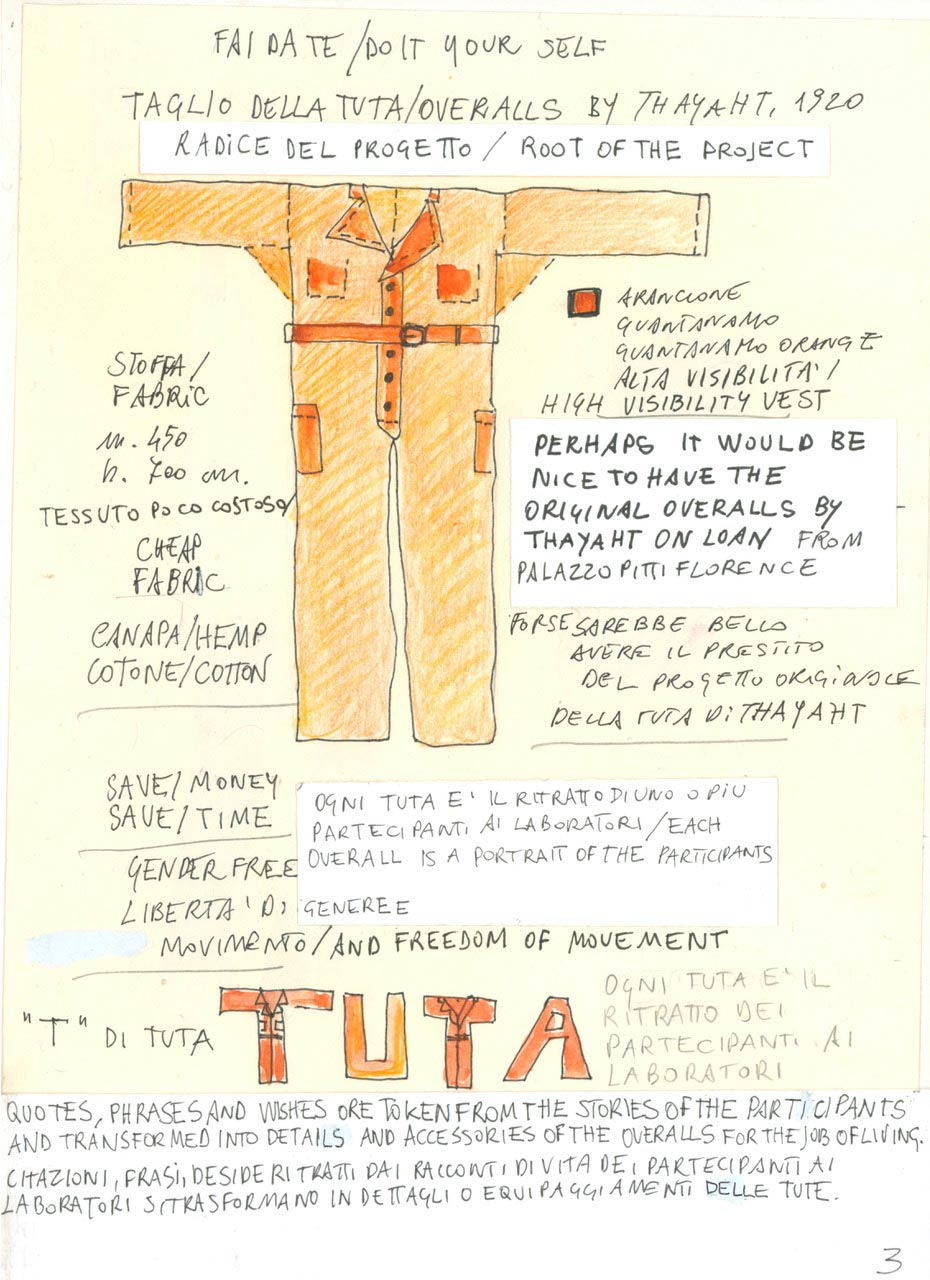 FAI DA TE/DO IT YOUR SELF
TAGLIO DELLA TUTA/OVERALLS BY THAYAHT, 1920
RADICE DEL PROGETTO / ROOT OF THE PROJECT
ARANCIONE
GUANTANAMO
GUANTANAMO ORANGE
ALTA VISIBILITA'/
HIGH VISIBILITY VEST
STOFFA/
FABRIC
m. 450
h. 700 cm.
TESSUTO POCO COSTOSO/
CHEAP
FABRIC
CANAPA/HEMP
COTONE/COTTON
PERHAPS IT WOULD BE
NICE TO HAVE THE
ORIGINAL OVERALLS BY
THAYAHT ON LOAN FROM
PALAZZO PITTI FLORENCE
FORSE SAREBBE BELLO
AVERE IL PRESTITO
DEL PROGETTO ORIGINALE
DELLA TUTA DI THAYAHT
SAVE/MONEY
SAVE/TIME
OGNI TUTA E' IL RITRATTO DI UNO O PIU
PARTECIPANTI AI LABORATORI/EACH
OVERALL IS A PORTRAIT OF THE PARTICIPANTS
GENDER FREE
LIBERTA' DI GENERE E
MOVIMENTO/AND FREEDOM OF MOVEMENT
"T" DI TUTA
TUTA
OGNI TUTA E' IL
RITRATTO DEI
PARTECIPANTI AI
LABORATORI
QUOTES, PHRASES AND WISHES ORE TOKEN FROM THE STORIES OF THE PARTICIPANTS
AND TRANSFORMED INTO DETAILS AND ACCESSORIES OF THE OVERALLS FOR THE JOB OF LIVING.
CITAZIONI, FRASI, DESIDERI TRATTI DAI RACCONTI DI VITA DEI PARTECIPANTI AI
LABORATORI SI TRASFORMANO IN DETTAGLI O EQUIPAGGIAMENTI DELLE TUTE.
3